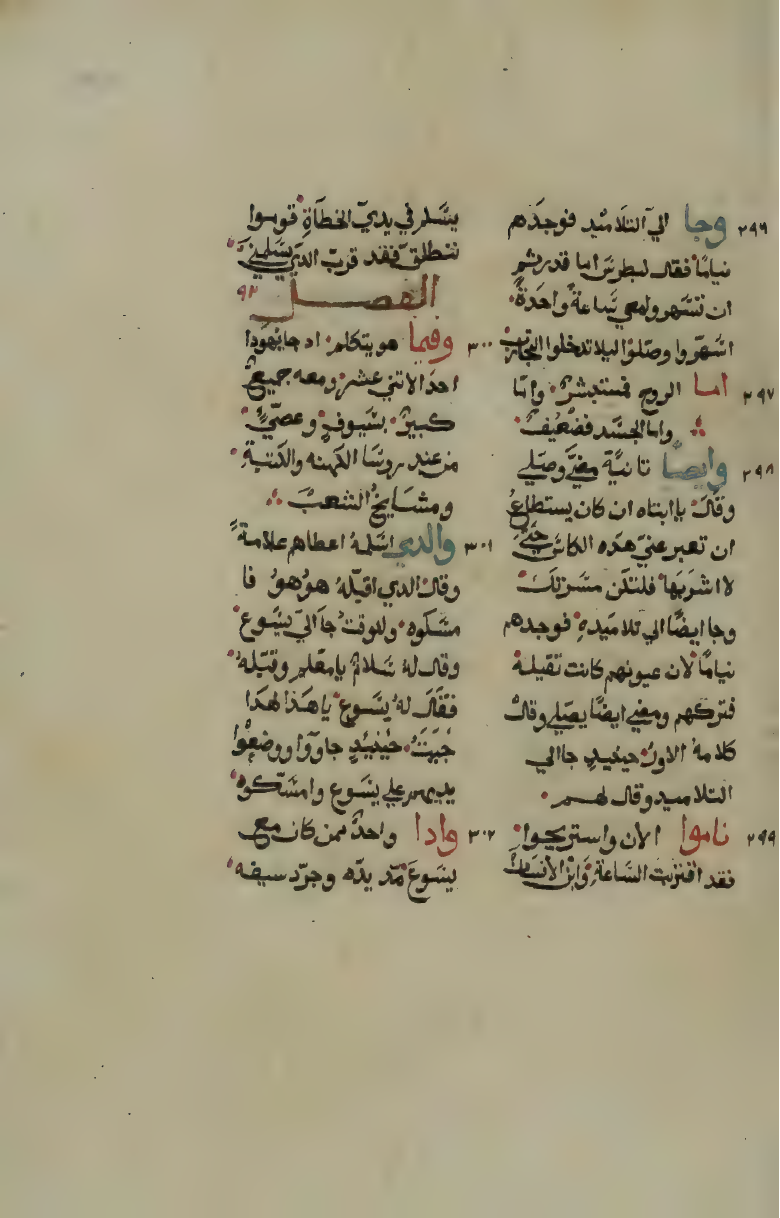 ٢٩٦ وجا الي التلاميد فوجدهم
نيامًا فقال لبطرس اما قدرتم
ان تسهرو امعي ساعةً واحدةً
اسهروا وصلوا ليلا تدخلوا التجارب
٢٩٧ اما الروح فمستبشرٌ وامّا
واما الجسد فضعيفٌ
٢٩٨ وايضًا تانيّة مضيَ وصلي
وقالَ يا ابتاه ان كان يستطاعُ
ان تعبر عني هده الكاس حتيَ
لا اشربها فلتكن مسرتكَ
وجا ايضًا الي تلاميدهِ فوجدهم
نيامًا لان عيونهم كانت تقيلة
فتركهم ومضي ايضًا يصلي وقال
كلامهُ الاول حينيدٍ جا الي
التلاميد وقال لهم
٢٩٩ ناموا الأن واستريحوا
فقد اقتربت الساعة وابن الأنسان
يسَلم في يديَ الخطاةِ قوموا
ننطلق فقد قربَ الدي يسلمنيَ
الفصل ٩٢
٣٠٠ وفيما هو يتكلم اد جا يهودا
احد الاتني عشر ومعه جميعٌ
كبيرٌ بسيوفٍ وعصيٍّ
من عند روسا الكهنه والكتبةِ
ومشايخُ الشعبَ
٣٠١ والدي اسلمهُ اعطاهم علامةً
وقال الدي اقبّلهُ هوُ هوُ فا
مسكوه وللوقتُ جا اليَ يسوع
وقال لهُ سلامٌ يا معلم وقبّلهُ
فقالَ لهُ يسوع يا هذا لهدا
جُيتَ حينيدٍ جاووا ووضعوا
يديهم علي يسوع وامسكوه
٣٠٢ وادا واحدٌ ممن كان مع
يسوعَ مّد يدّه وجرّد سيفه